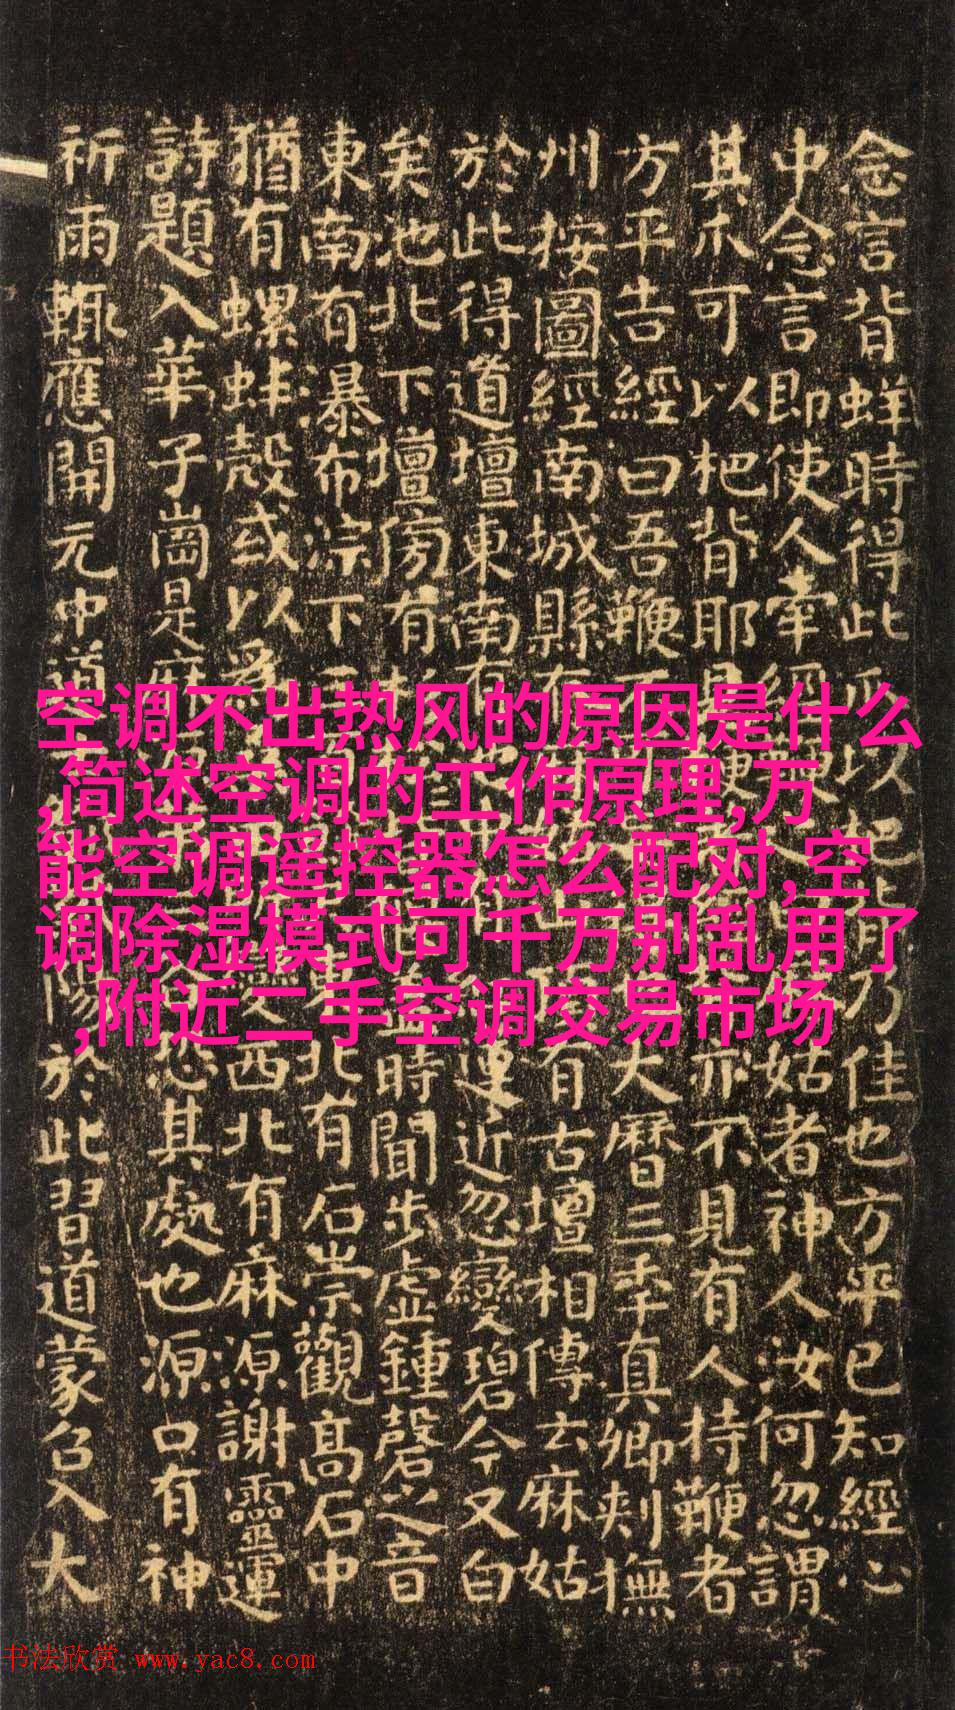 空调不出热风的原因是什么
,简述空调的工作原理,万
能空调遥控器怎么配对,空
调除湿模式可千万别乱用了
,附近二手空调交易市场
念言背蛘時得此爪以杷背乃佳也方平已知經心
中念言即使人牽經姑者神人汝何忽謂
其爪可以杷背耶見鞭亦不見有人持鞭者
方平告經曰吾鞭不大曆三年真卿刾撫
州按圖經南城縣有有古壇相傳云麻姑
於此得道壇東南有蓮近忽變碧今又白
矣池北下壇傍有蓋時聞步虛鍾磬之音
東南有瀑布淙下三北有石崇觀高石中
猶有螺蚌殼或以為變西北有麻源謝靈運
詩題入華子崗是麻恐其處也源口有神
祈雨輒應開元中道陽於此習道蒙召入大
书法欣赏 www.yac8.com